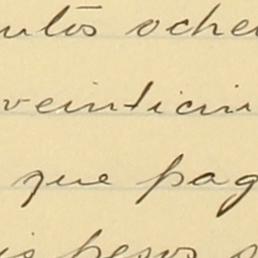 ntos oche
veinticin
que pag
is pesos